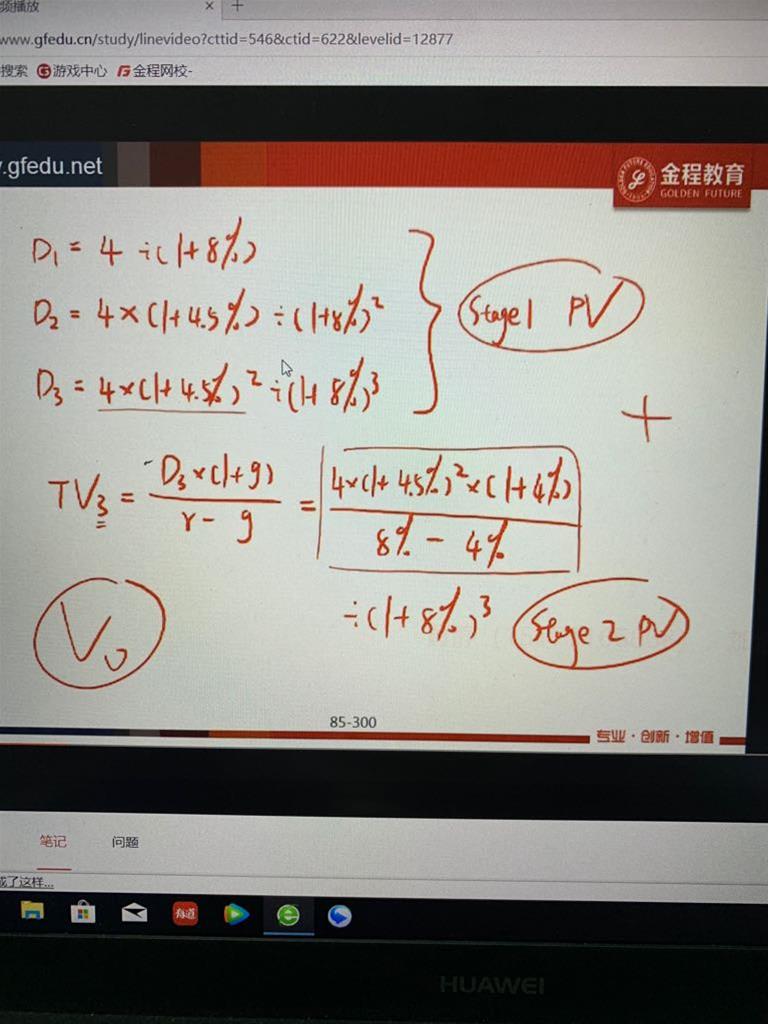 频播放 × +
www.gfedu.cn/study/linevideo?cttid=546&ctid=622&levelid=12877
搜索 游戏中心 金程网校-
.gfedu.net
金程教育
GOLDEN FUTURE
D₁ = 4 ÷(1+8%)
D₂ = 4×(1+4.5%) ÷(1+8%)²
D₃ = 4×(1+4.5%)² ÷(1+8%)³
Stage1 PV
+
TV₃ = D₃×(1+g) / r-g = 4×(1+4.5%)²×(1+4%) / 8% - 4%
÷(1+8%)³
Stage 2 PV
V₀
85-300
专业·创新·增值
笔记 问题
成了这样...
有道
HUAWEI